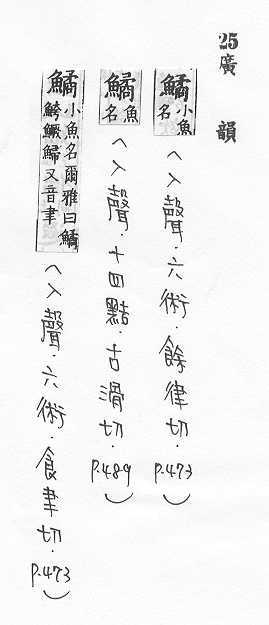 25廣韻
鱊小魚名(入聲.六術.餘律切.P.473)
鱊魚名(入聲.十四黠.古滑切.P.489)
鱊小魚名爾雅曰鱊鮬鱖鯞又音聿(入聲.六術.食聿切.P.473)